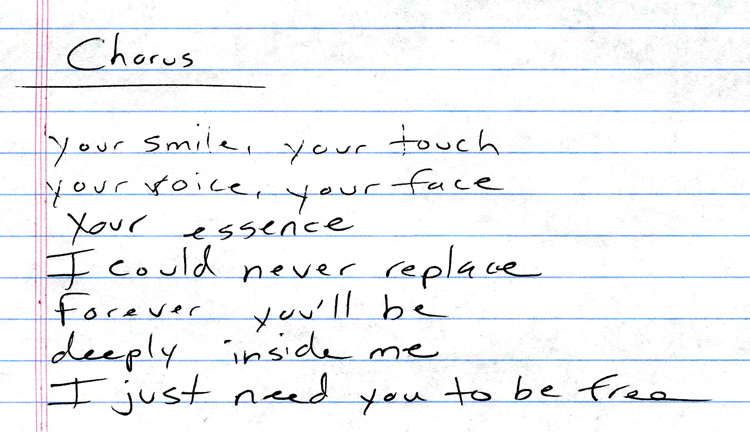 Chorus
your smile, your touch
your voice, your face
Your essence
I could never replace
Forever you'll be
deeply inside me
I just need you to be free